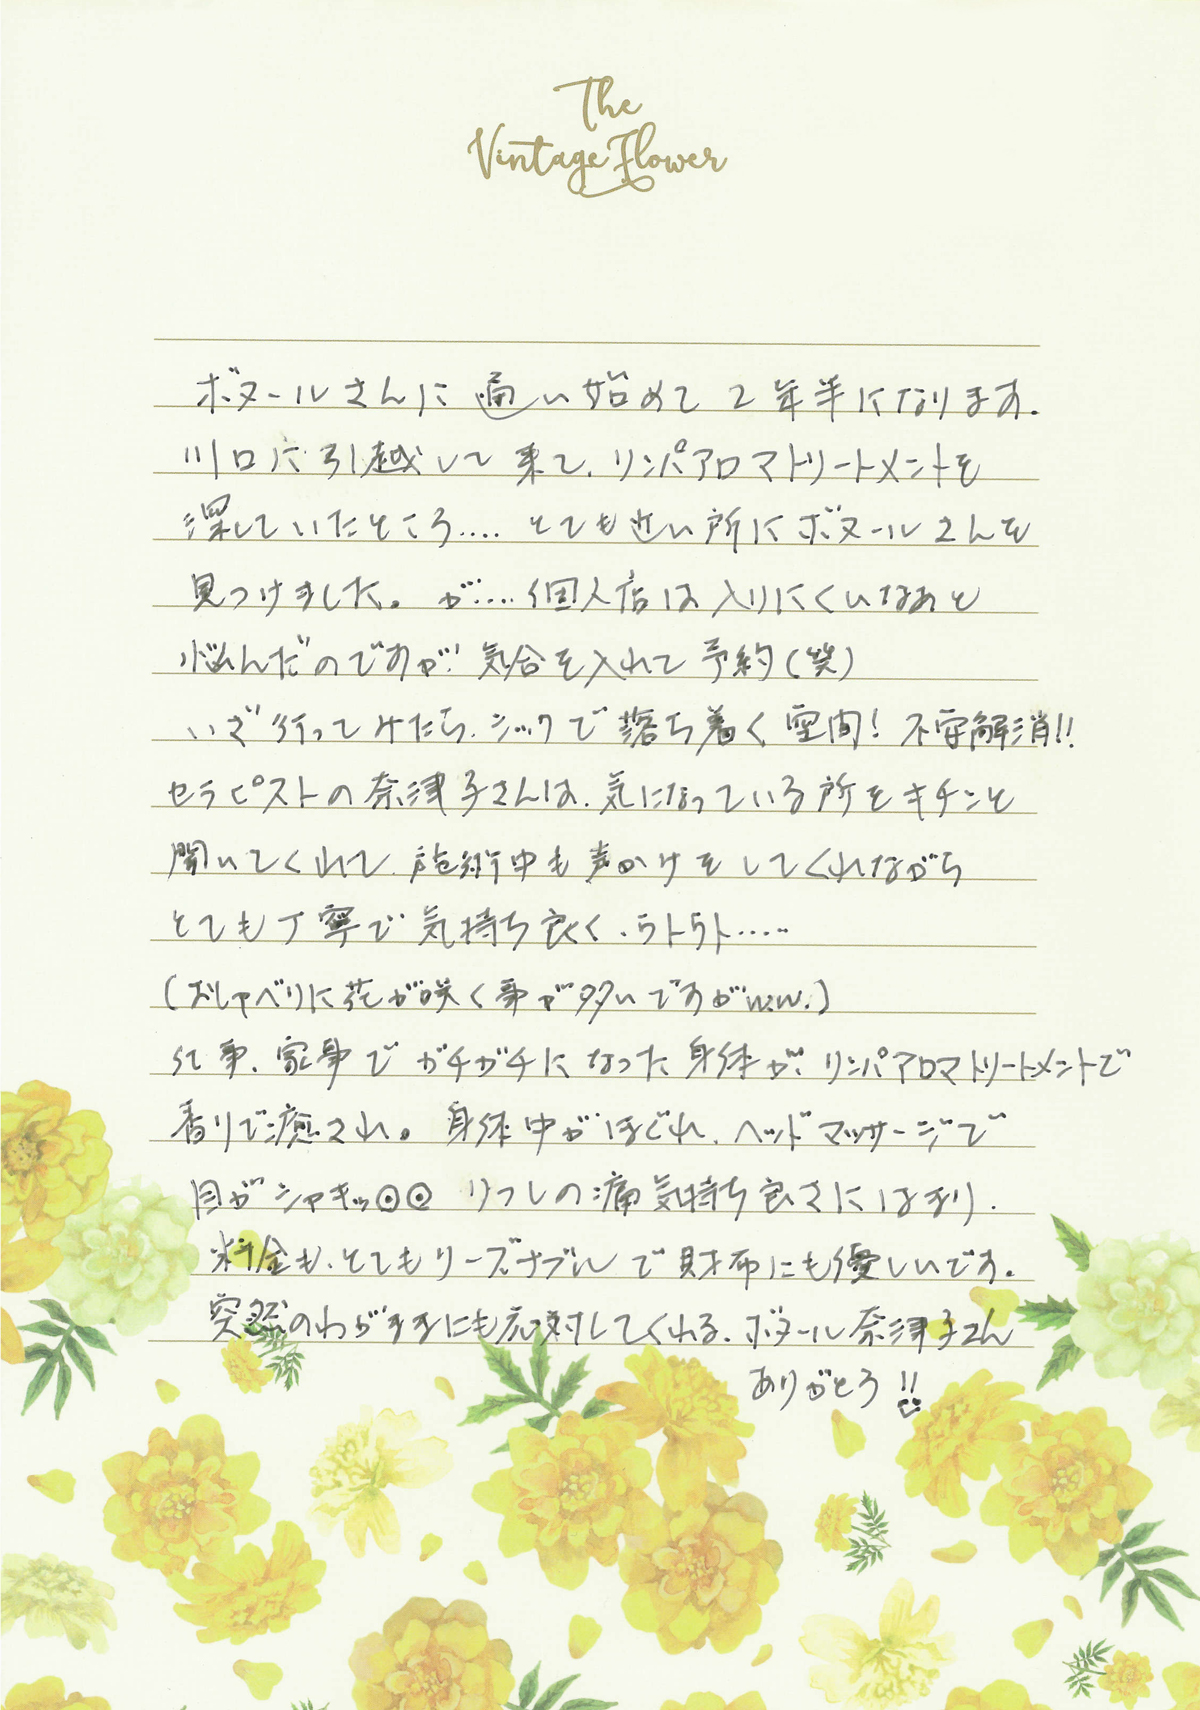 The
Vintage Flower
ボヌールさんに通い始めて2年半になります。
川口に引越して来て、リンパアロマトリートメントを
探していたところ.... とても近い所にボヌールさんを
見つけました。が.... 個人店は入りにくいなぁと
悩んだのですが! 気合を入れて予約(笑)
いざ行ってみたら、シックで落ち着く空間! 不安解消!!
セラピストの奈津子さんは、気になっている所をキチンと
聞いてくれて、施術中も声かけをしてくれながら
とても丁寧で気持ち良く、ウトウト.....
(おしゃべりに花が咲く事が多いですがw.w.)
仕事、家事でガチガチになった身体が、リンパアロマトリートメントで
香りで癒され。身体中がほぐれ、ヘッドマッサージで
目がシャキッ◉◉ リフレの痛気持ち良さにはまり、
料金も、とてもリーズナブルで財布にも優しいです。
突然のわがままにも応対してくれる、ボヌール奈津子さん
ありがとう!!